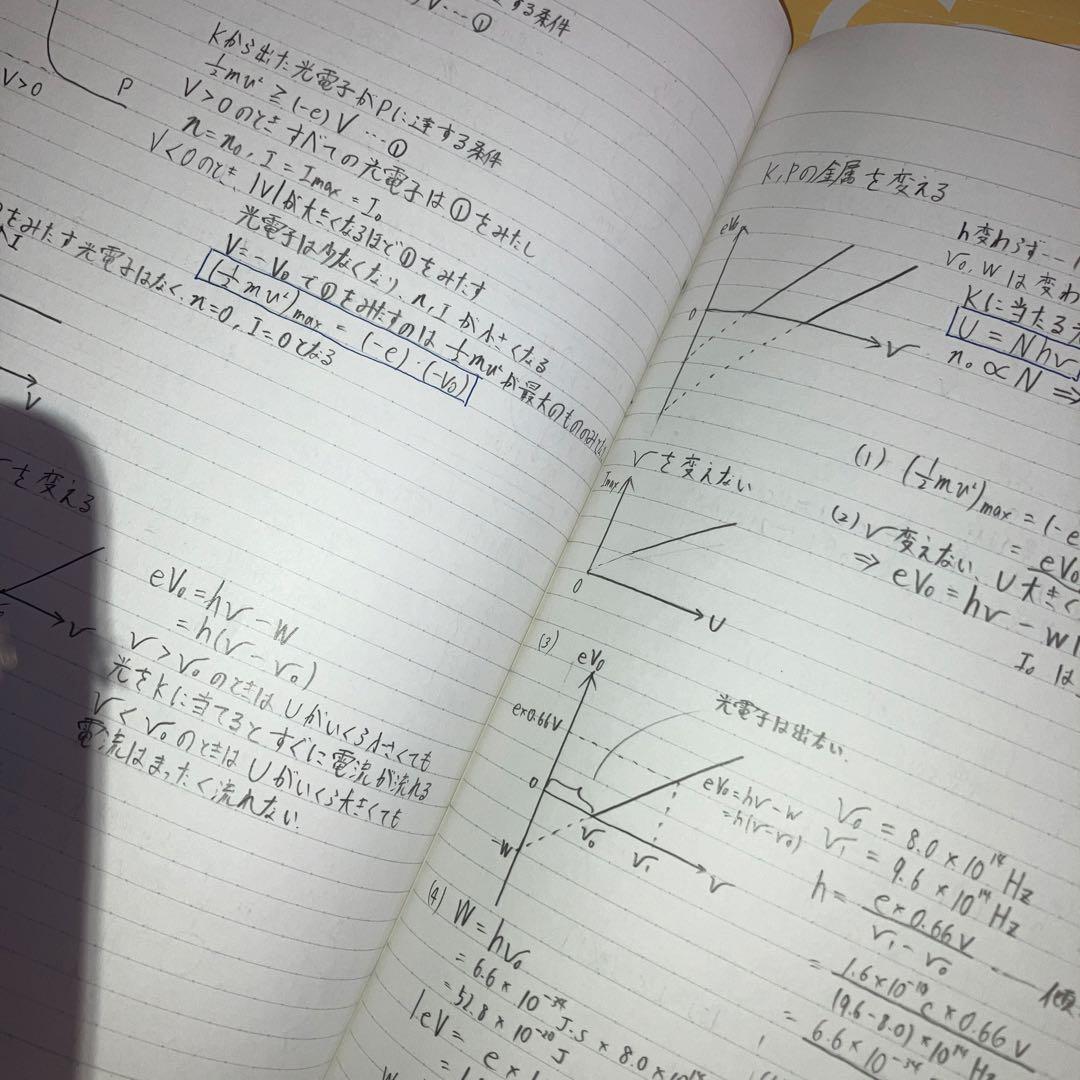 する条件
V…①
V>0
P
Kから出た光電子がPに達する条件
½mv² ≧ (-e)V …①
V>0のとき すべての光電子は①をみたし
n=n₀, I=Imax=I₀
V<0のとき, |V|が大きくなるほど①をみたす
光電子は少なくなり、n, I が小さくなる
V=-V₀で①をみたすのは½mv²が最大のもののみ
(½mv²)max = (-e)・(-V₀)
をみたす光電子はなく、n=0, I=0となる
I
V
を変える
ν
eV₀=hν-W
=h(ν-ν₀)
ν>ν₀のときはUがいくら小さくても
光をKに当てるとすぐに電流が流れる
ν<ν₀のときはUがいくら大きくても
電流はまったく流れない
K,Pの金属を変える
eV₀
0
ν
h変わらず…
ν₀, Wは変わ
Kに当たる
U=Nhν
n₀∝N ⇒
νを変えない
Imax
0
U
(1) (½mv²)max = (-e
= eV₀
(2) ν変えない、U大きく
⇒ eV₀=hν-W
I₀は
(3)
eV₀
e×0.66V
0
-W
ν₀
ν₁
ν
光電子は出ない
eV₀=hν-W
=h(ν-ν₀)
ν₀=8.0×10¹⁴Hz
ν₁=9.6×10¹⁴Hz
h= e×0.66V
ν₁-ν₀
= 1.6×10⁻¹⁹C×0.66V
(9.6-8.0)×10¹⁴Hz
= 6.6×10⁻³⁴
(4) W=hν₀
=6.6×10⁻³⁴J・s×8.0×10¹⁴
=52.8×10⁻²⁰J
1eV= e×1